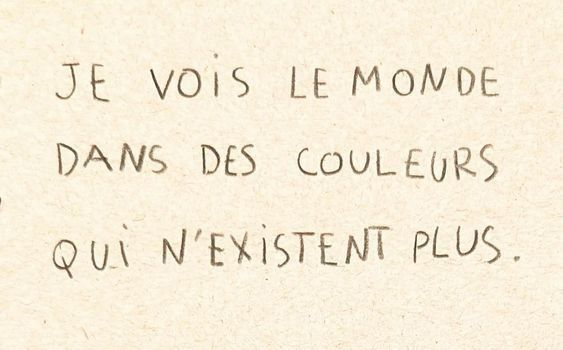 JE VOiS LE MONDE
DANS DES COULEURS
QUi N'EXiSTENT PLUS.